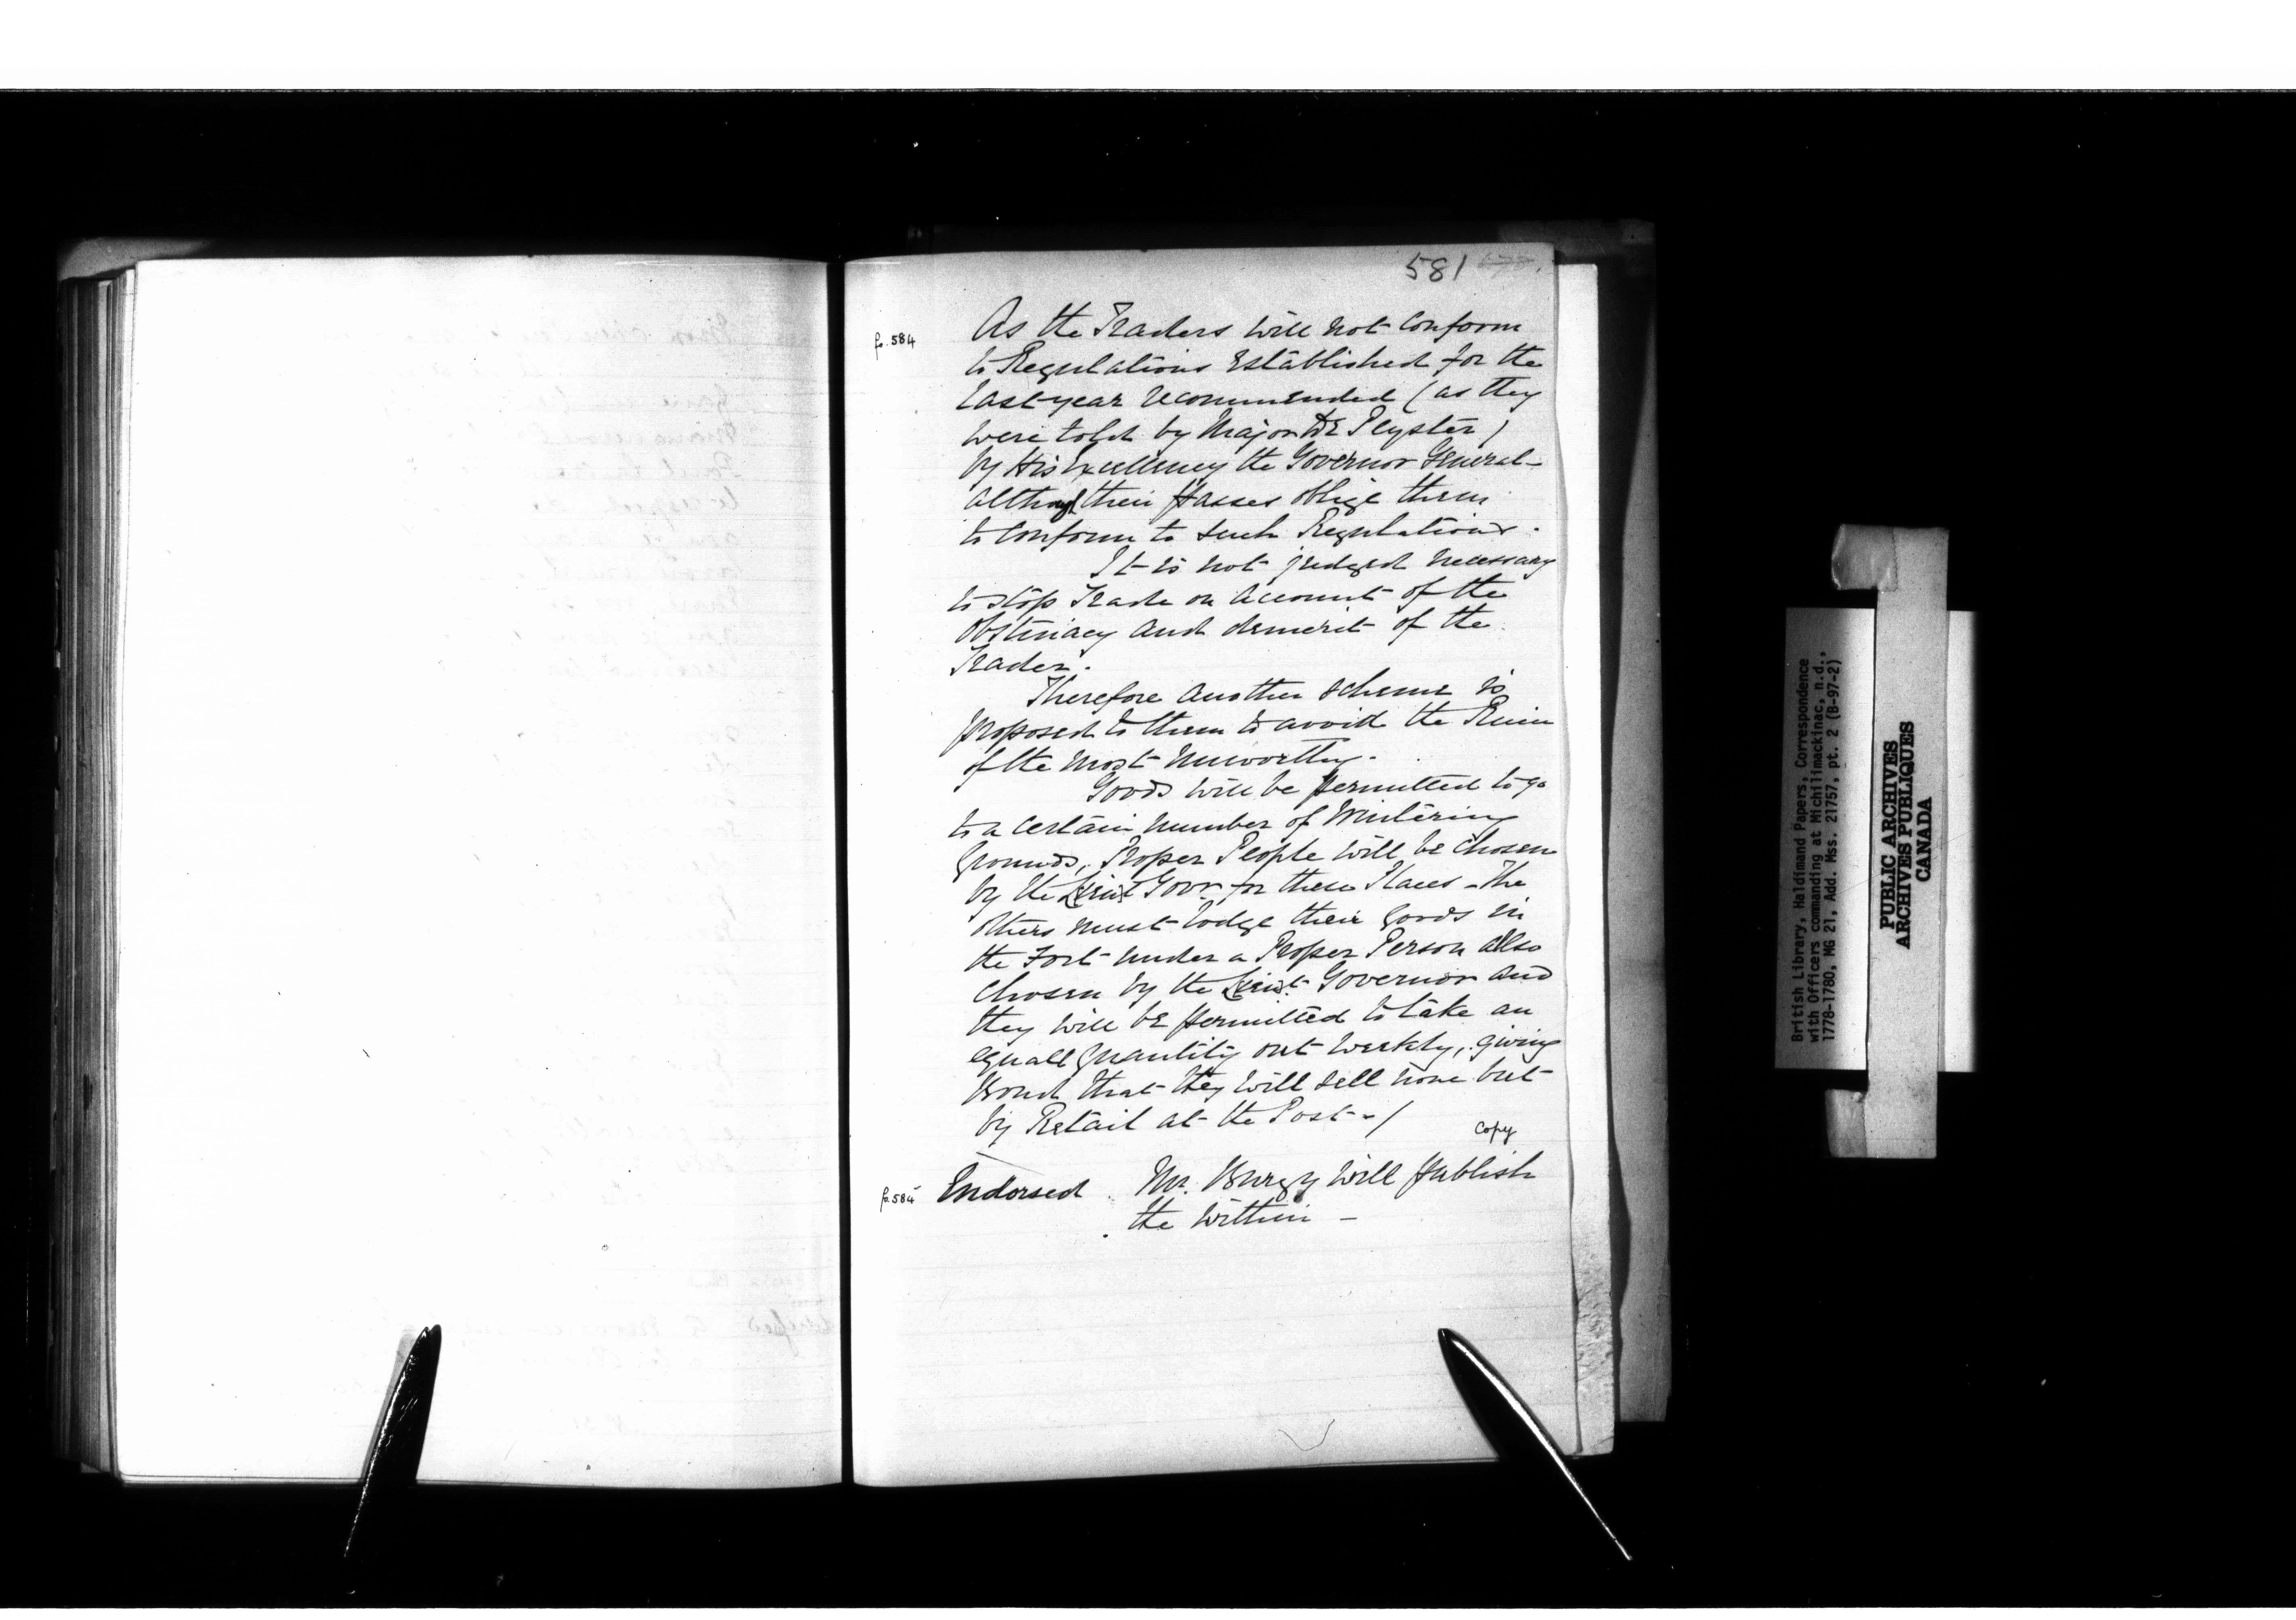 581
fo. 584
As the Traders will not conform
to Regulations Established for the
last year recommended (as they
were told by Major De Peyster)
by His Excellency the Governor General -
althoug their passes oblige them
to conform to such Regulations.
It is not judged necessary
to stop Trade on account of the
obstinacy and demerit of the
Trader.
Therefore another scheme is
proposed to them to avoid the Ruin
of the most unworthy.
Goods will be permitted to go
to a certain number of Wintering
grounds, Proper People will be chosen
by the Lieut Govr for these Places - The
others must lodge their goods in
the Fort under a Proper Person also
chosen by the Lieut Governor and
they will be permitted to take an
equall quantity out weekly, giving
Bond that they will sell none but
by Retail at the Post - /
Copy
fo. 584 Endorsed Mr. Burgy will publish
the within -
British Library, Haldimand Papers, Correspondence
with Officers commanding at Michilimackinac, n.d.,
1778-1780, MG 21, Add. Mss. 21757, pt. 2 (B-97-2)
PUBLIC ARCHIVES
ARCHIVES PUBLIQUES
CANADA